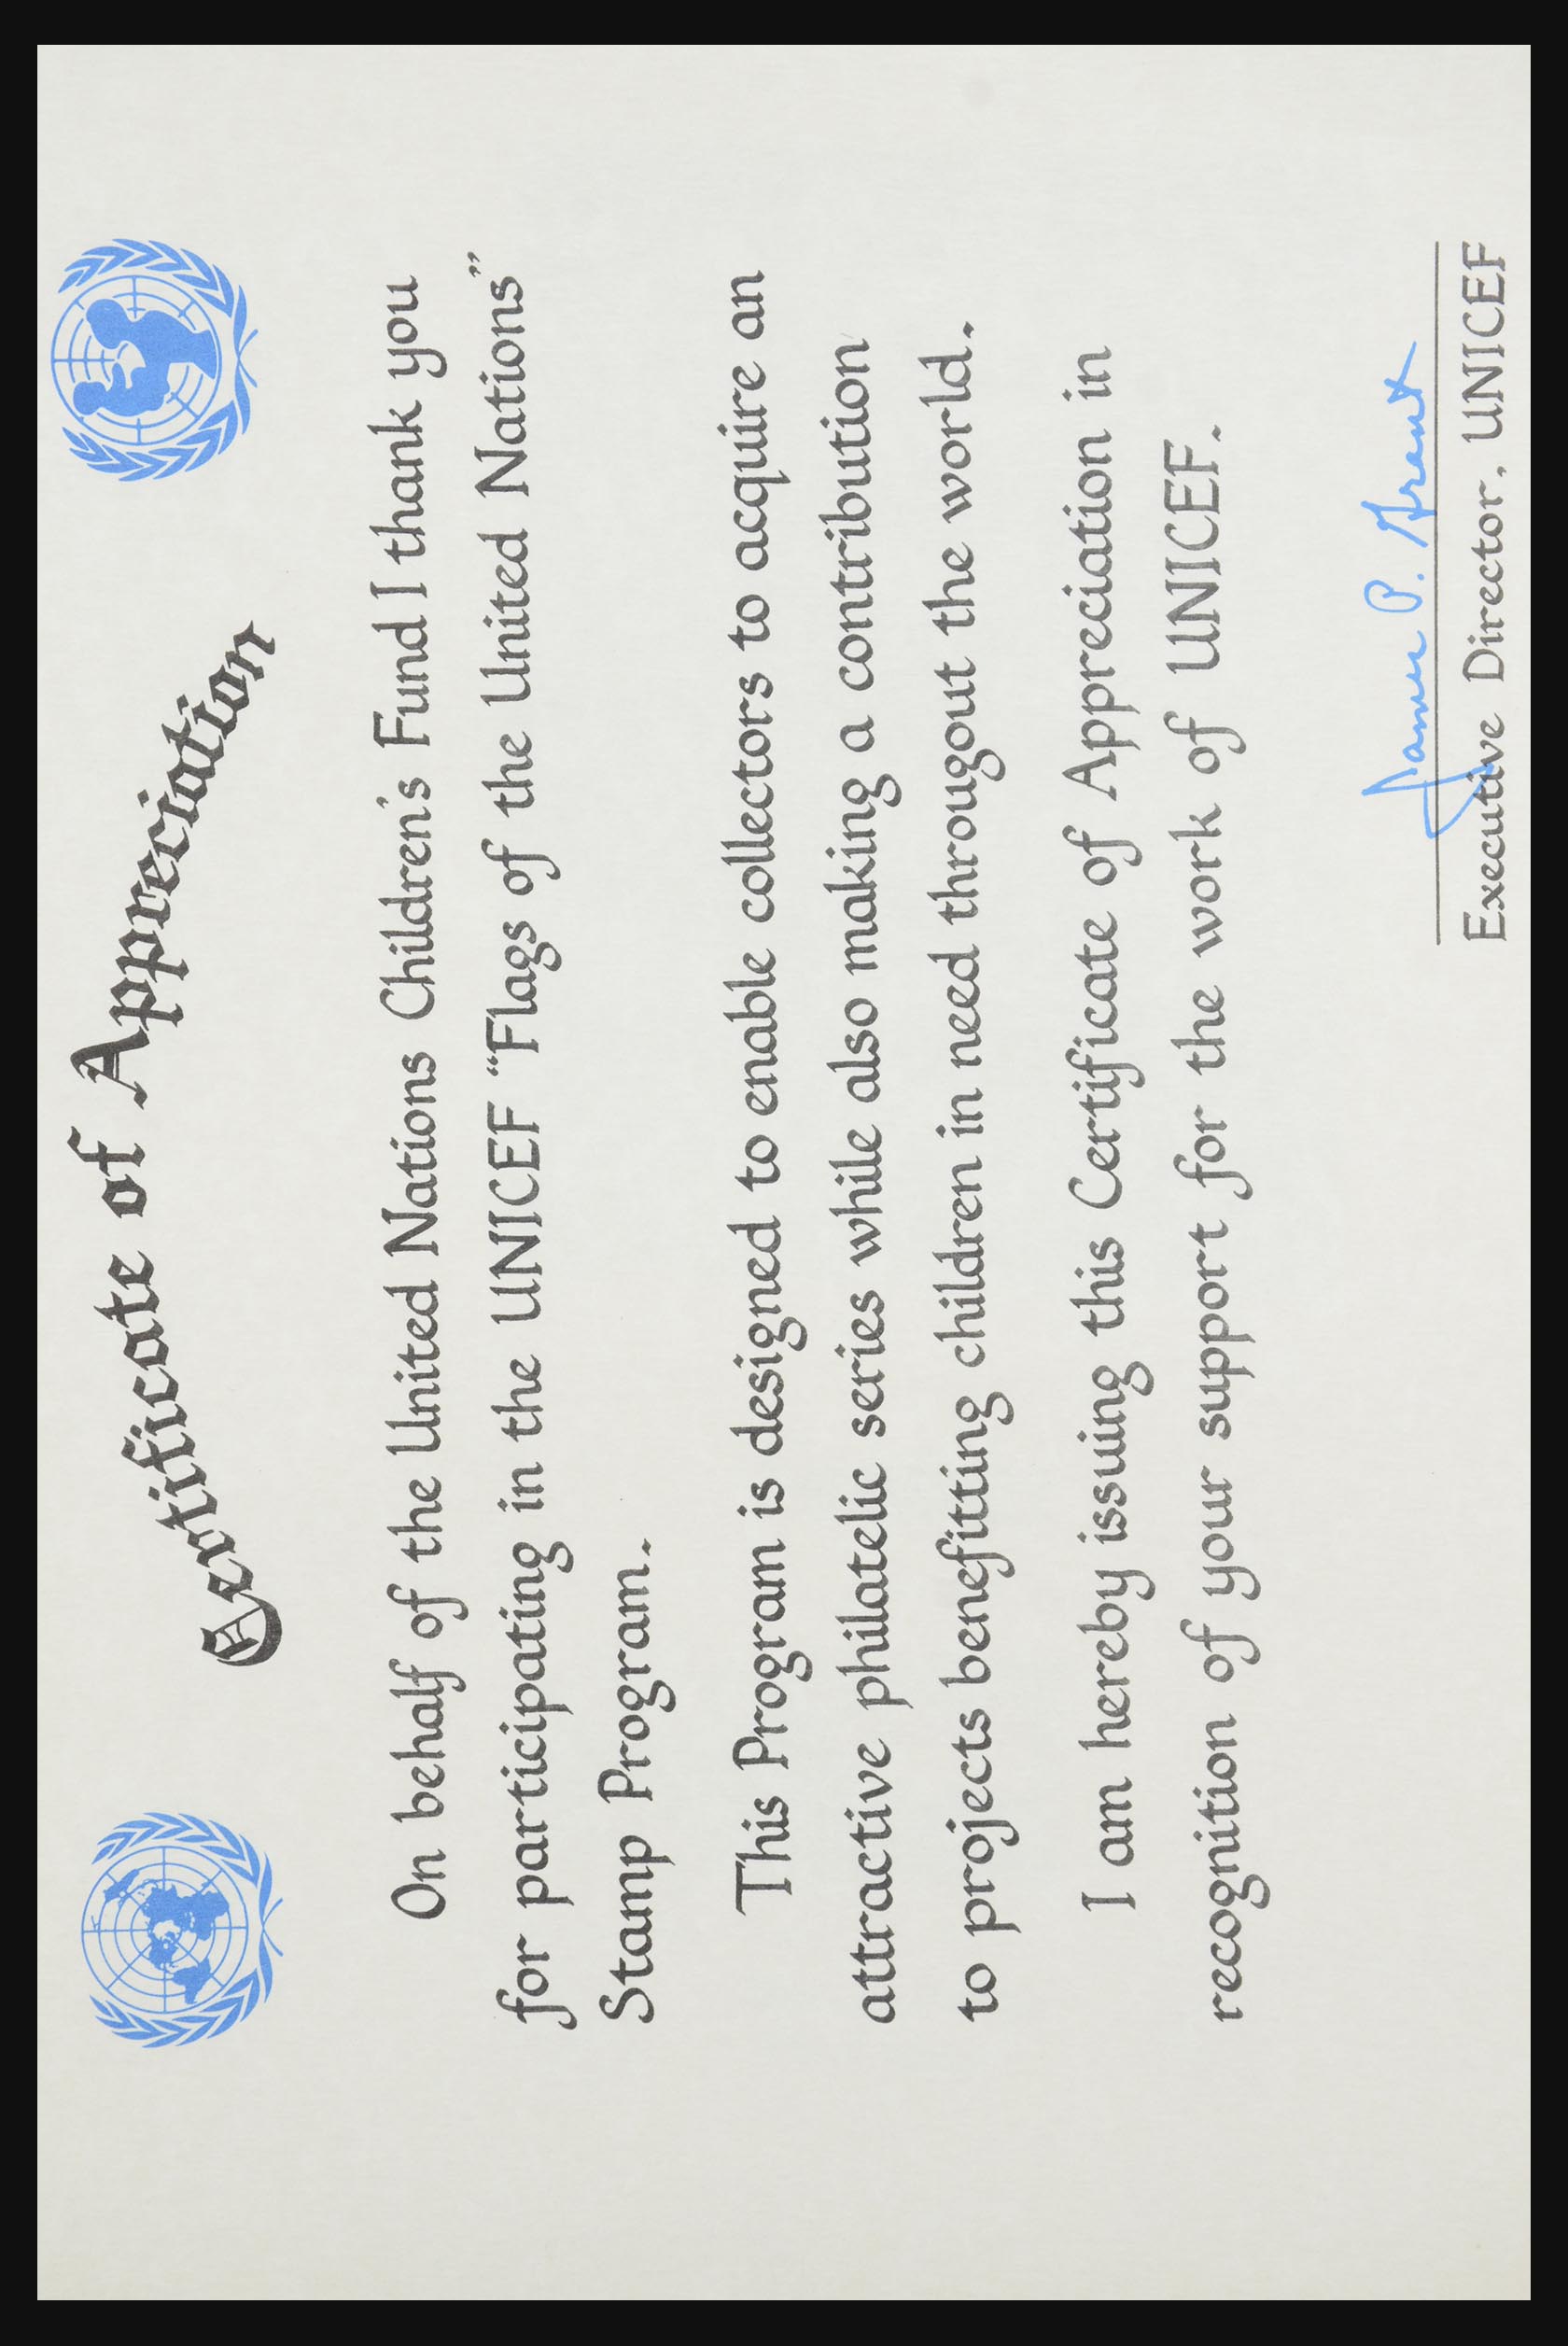 Certificate of Appreciation
On behalf of the United Nations Children's Fund I thank you
for participating in the UNICEF "Flags of the United Nations"
Stamp Program.
This Program is designed to enable collectors to acquire an
attractive philatelic series while also making a contribution
to projects benefitting children in need througout the world.
I am hereby issuing this Certificate of Appreciation in
recognition of your support for the work of UNICEF.
James P. Grant
Executive Director, UNICEF